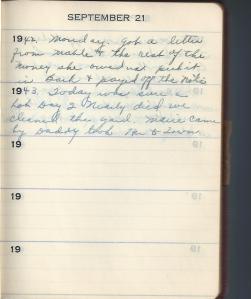 SEPTEMBER 21
1942. Monday. got a letter
from Mable & the rest of the
money she owed us put it
in Bank & payed off the note
1943. Today was sure a
hot Day I Nicely did we
cleaned the yard. Marie came
by Daddy took her to town.
19
19
19